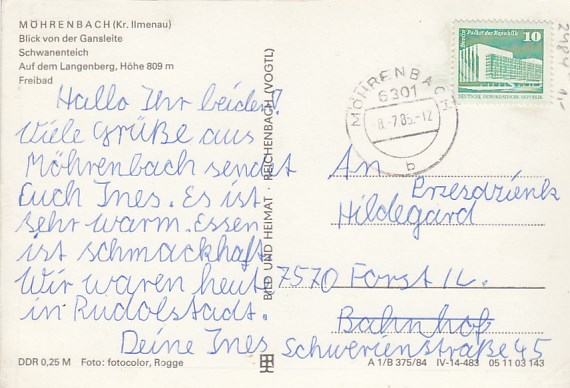 MÖHRENBACH (Kr. Ilmenau)
Blick von der Gansleite
Schwanenteich
Auf dem Langenberg, Höhe 809 m
Freibad
Hallo Ihr beiden!
Viele Grüße aus
Möhrenbach sendet
Euch Ines. Es ist
sehr warm. Essen
ist schmackhaft.
Wir waren heute
in Rudolstadt.
Deine Ines
DDR 0,25 M Foto: fotocolor, Rogge
BILD UND HEIMAT · REICHENBACH (VOGTL)
Berlin Palast der Republik 10
DEUTSCHE DEMOKRATISCHE REPUBLIK
MÖHRENBACH
6301
8.-7.85.-12
b
An
Hildegard
7570 Forst /L.
Bahnhof
Schwerienstraße 45
A 1/B 375/84 IV-14-483 05 11 03 143